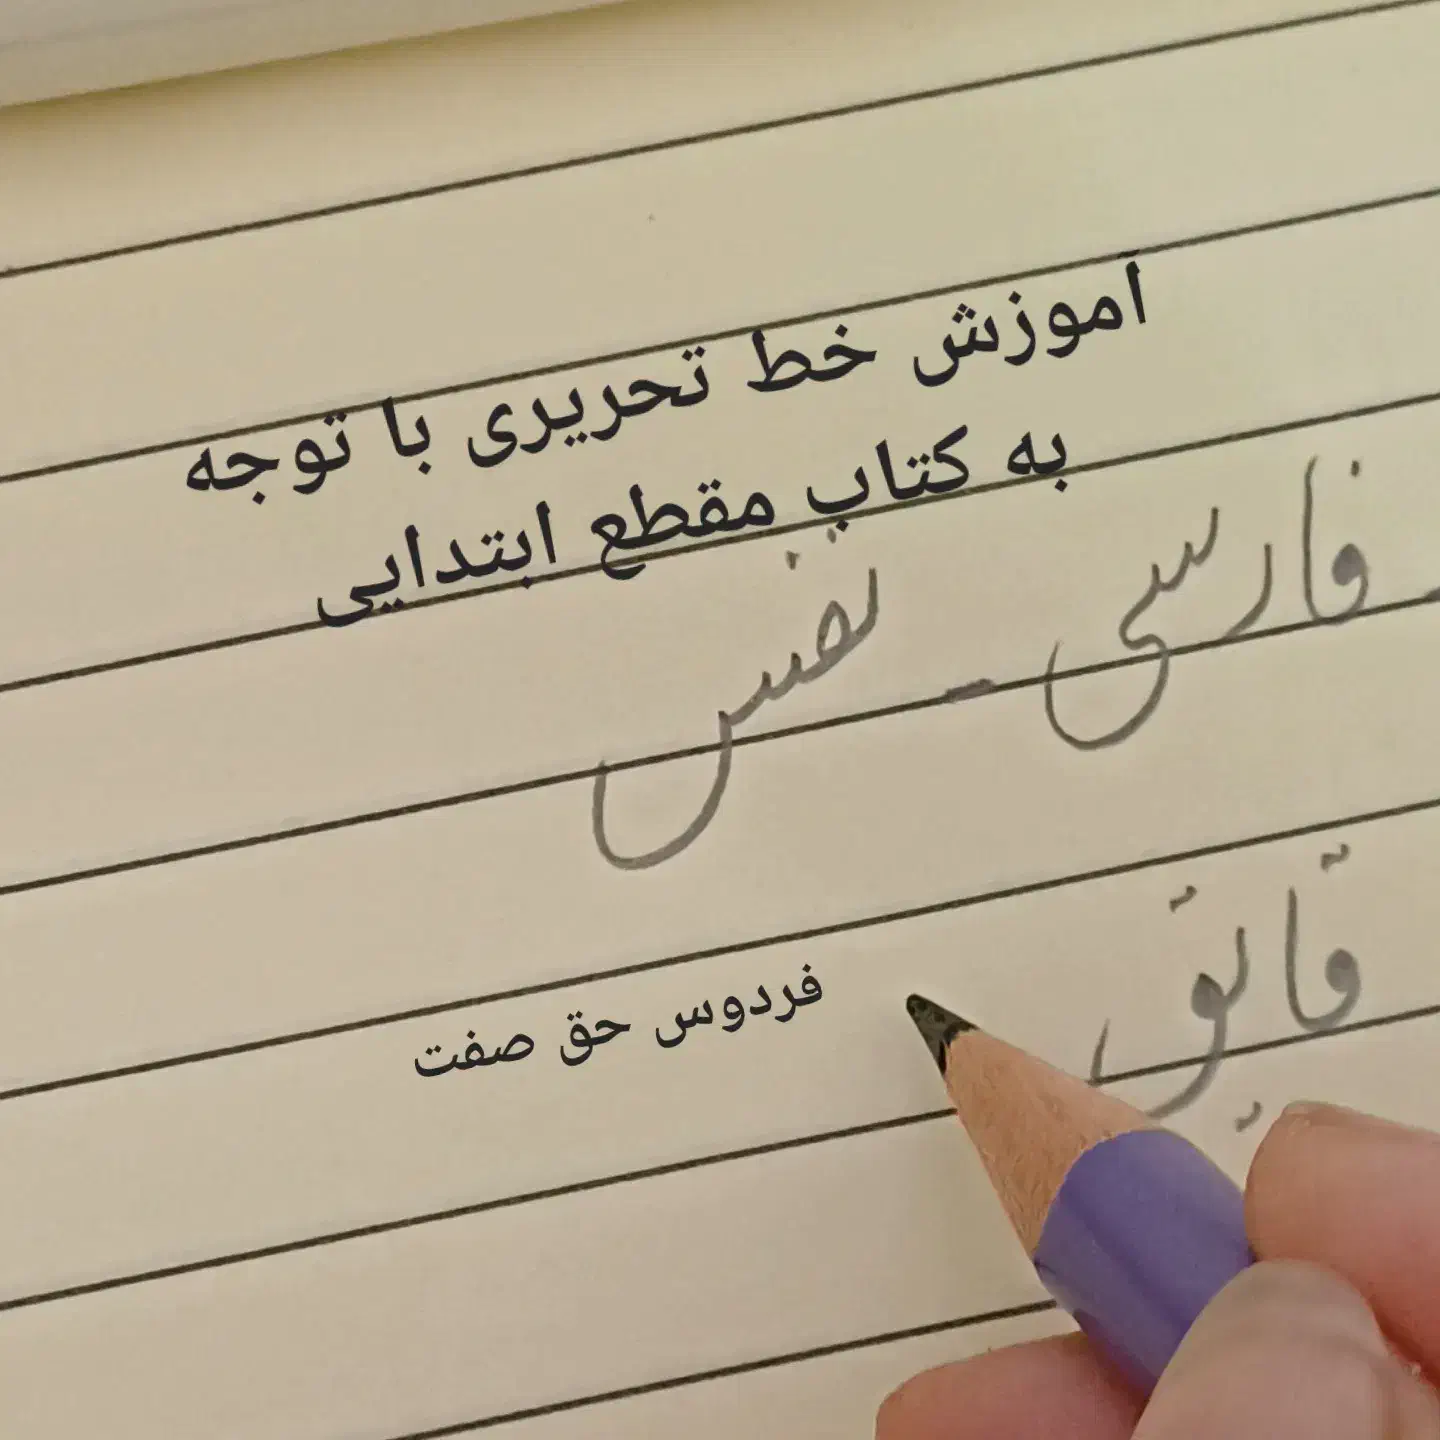 آموزش خط تحریری با توجه
به کتاب مقطع ابتدایی
فارسی - نفس
قایق
فردوس حق صفت